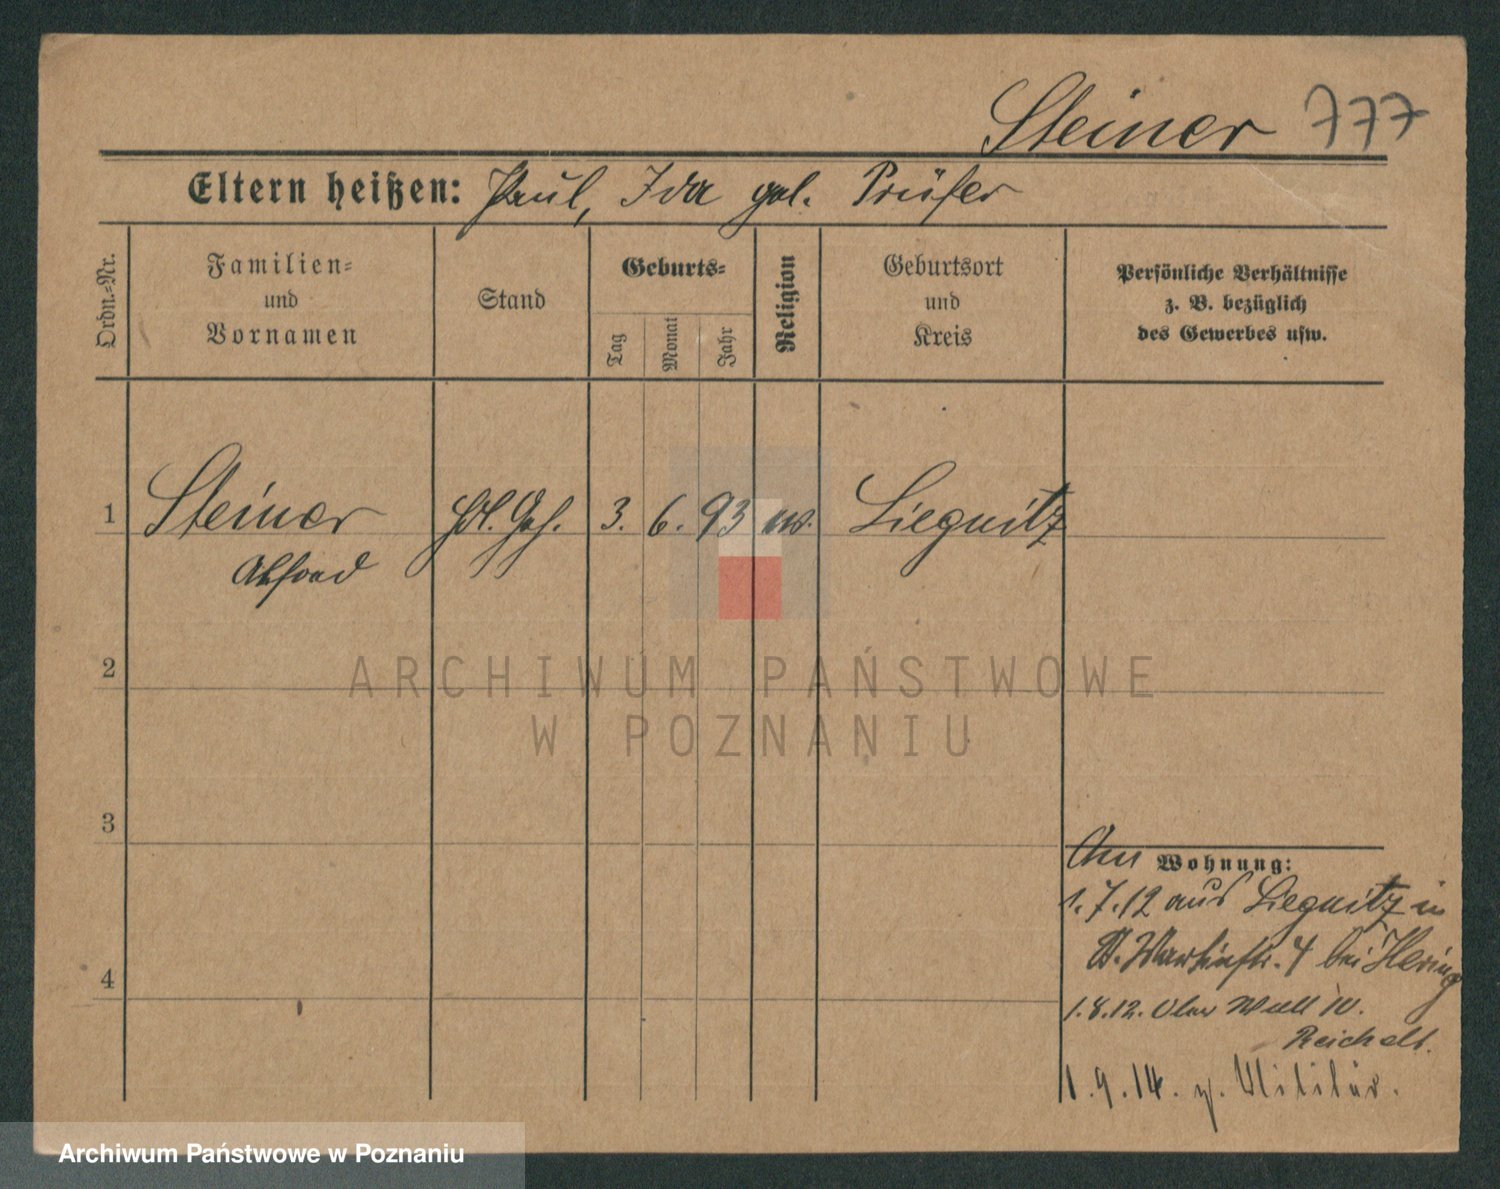 Steiner 777
Eltern heißen: Paul, Ida geb. Prüfer
Ordn.=Nr.
Familien=
und
Vornamen
Stand
Geburts=
Tag
Monat
Jahr
Religion
Geburtsort
und
Kreis
Persönliche Verhältnisse
z. B. bezüglich
des Gewerbes usw.
1 Steiner Hdl. Geh. 3. 6. 93 ev. Liegnitz
Alfred
2
3
4
Wohnung:
1.7.12 aus Liegnitz in
St. Martinstr. 4 bei Hering
1.8.12. Ober Wall
Reichelt.
1.9.14. z. Militär.
ARCHIWUM PAŃSTWOWE
W POZNANIU
Archiwum Państwowe w Poznaniu